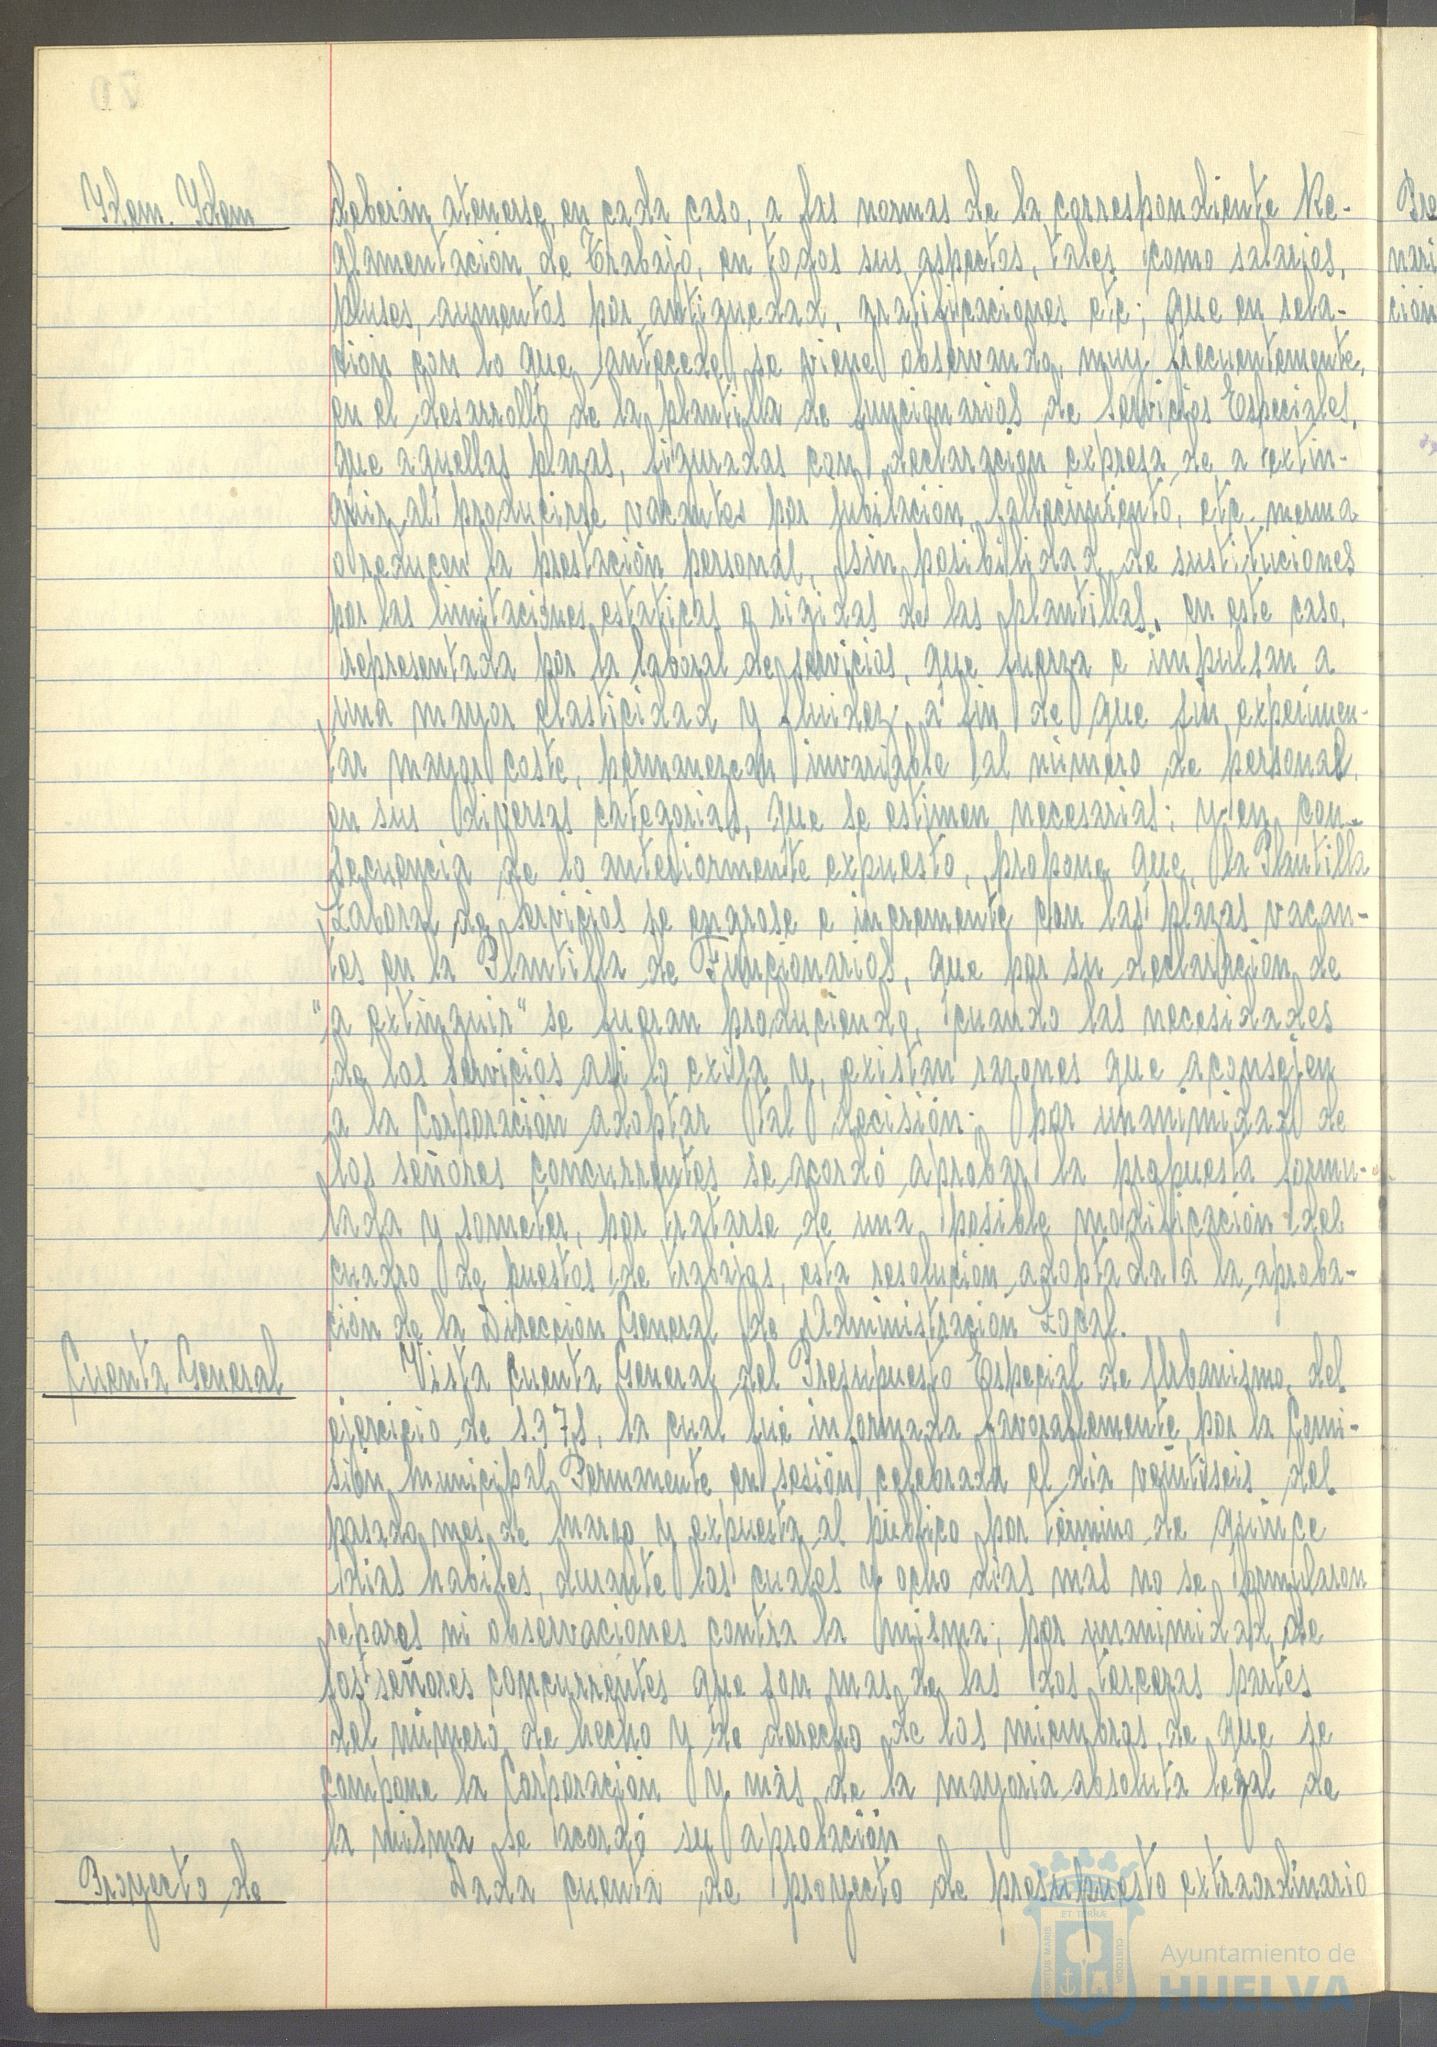 Ydem. Ydem
deberán atenerse, en cada caso, a las normas de la correspondiente Re-
glamentación de Trabajo, en todos sus aspectos, tales como salarios,
pluses, aumentos por antiguedad, gratificaciones etc; que en rela-
ción con lo que antecede, se viene observando, muy frecuentemente,
en el desarrollo de la plantilla de funcionarios de servicios Especiales,
que aquellas plazas, figuradas con declaración expresa de a extin-
guir, al producirse vacantes por jubilación, fallecimiento, etc. merma
o reducen la prestación personal, sin posibilidad de sustituciones
por las limitaciones estaticas o rigidas de las plantillas, en este caso,
representada por la laboral de servicios, que fuerza e impulsan a
una mayor elasticidad y fluidez, a fin de que sin experimen-
tar mayor coste, permanezcan invariable al número de personal,
en sus diversas categorias, que se estimen necesarias; y en con-
secuencia de lo anteriormente expuesto, propone que, la Plantilla
Laboral de servicios se engrose e incremente con las plazas vacan-
tes en la Plantilla de Funcionarios, que por su declaración de
"a extinguir" se fueran produciendo, cuando las necesidades
de los servicios asi lo exija y, existan razones que aconsejen
a la Corporación adoptar tal decisión; por unanimidad de
los señores concurrentes se acordó aprobar la propuesta formu-
lada y someter, por tratarse de una posible modificación del
cuadro de puestos de trabajos, esta resolución adoptada a la aproba-
ción de la Dirección General de Administración Local.
Cuenta General
Vista cuenta General del Presupuesto Especial de Urbanismo, del
ejercicio de 1.978, la cual fué informada favorablemente, por la Comi-
sión Municipal Permanente en sesión celebrada el dia veintiseis del
pasado mes de marzo y expuesta al público por término de quince
dias habiles, durante los cuales y ocho dias más no se formularon
reparos ni observaciones contra la misma; por unanimidad de
los señores concurrentes que son mas de las dos terceras partes
del número de hecho y de derecho de los miembros, de que se
compone la Corporación y más de la mayoria absoluta legal de
la misma se acordó su aprobación
Proyecto de
Dada cuenta de proyecto de presupuesto extraordinario
Ayuntamiento de
HUELVA